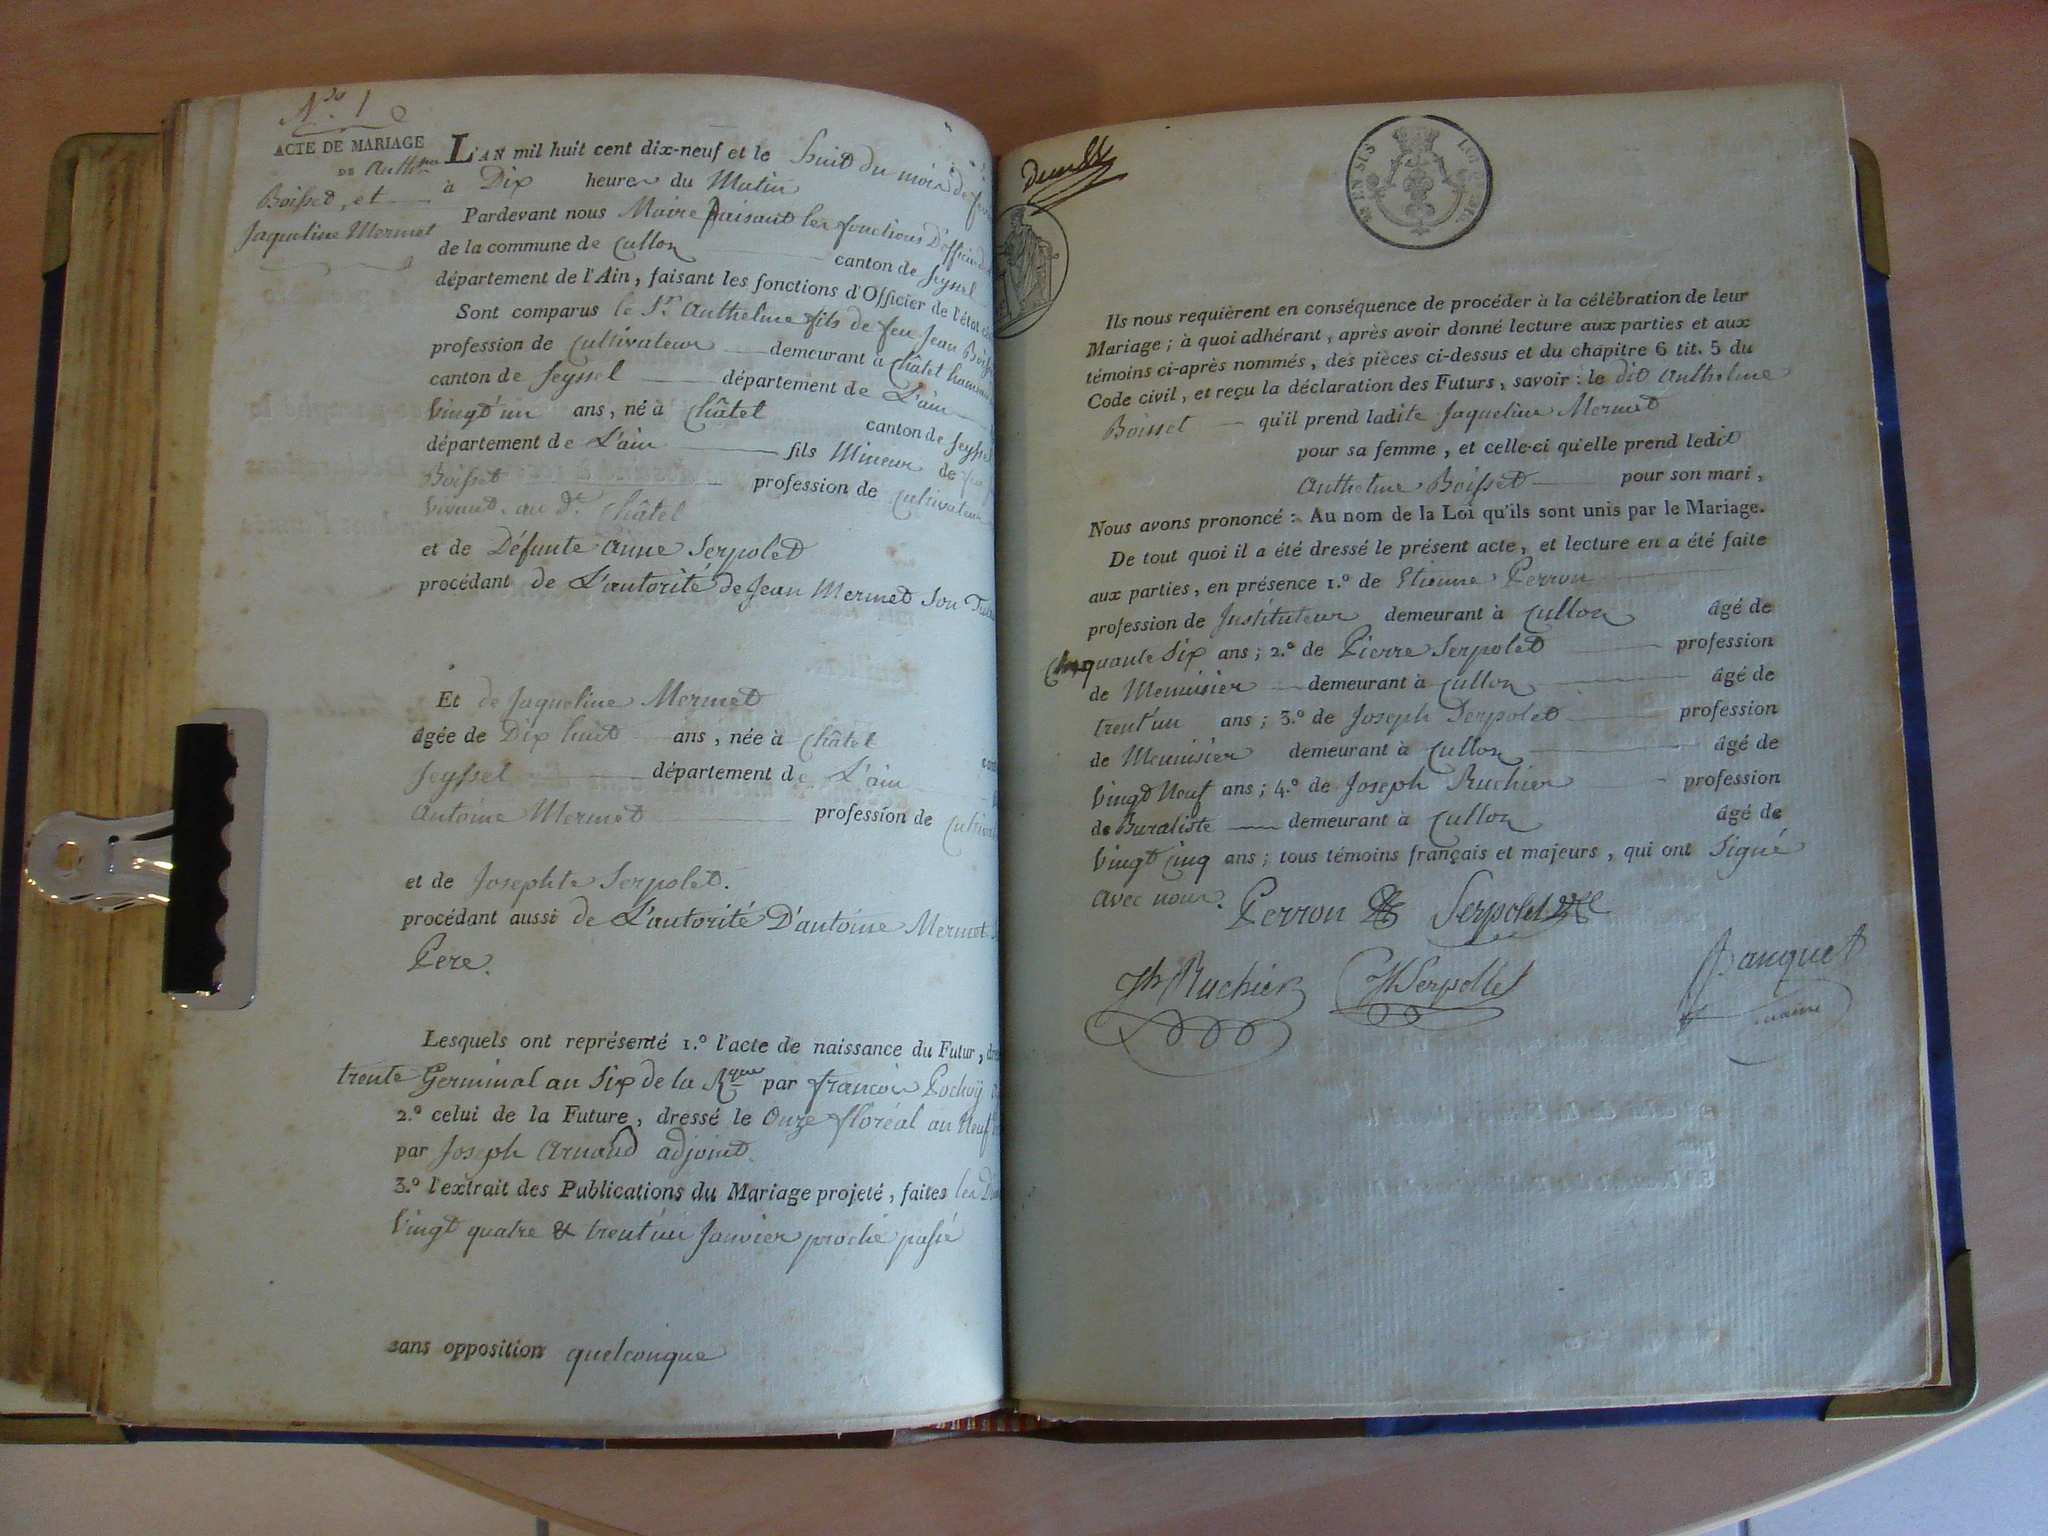 N.ro 1
ACTE DE MARIAGE
DE Anth.me
Boisset, et
Jaqueline Mermet
L'AN mil huit cent dix-neuf et le huit du mois de
à Dix heures du Matin
Pardevant nous Maire faisant les fonctions D'officier
de la commune de Cullon canton de Seyssel
département de l'Ain, faisant les fonctions d'Officier de l'état
Sont comparus le S.r Anthelme fils de feu Jean
profession de Cultivateur demeurant à Châtel hameau
canton de Seyssel département de L'ain
Vingt'un ans, né à Châtel canton de Seyssel
département de L'ain fils Mineur de
Boisset profession de Cultivateur
vivant au d.t Châtel
et de Défunte Anne Serpolet
procédant de L'autorité de Jean Mermet Son
Et de Jaqueline Mermet
âgée de Dix huit ans, née à Châtel
Seyssel département de L'ain
Antoine Mermet profession de
et de Josephte Serpolet.
procédant aussi de L'autorité D'antoine Mermet
Pere.
Lesquels ont représenté 1.º l'acte de naissance du Futur,
trente Germinal an Six de la R.que par françois
2.º celui de la Future, dressé le Onze floréal an Neuf
par Joseph Arnaud adjoint.
3.º l'extrait des Publications du Mariage projeté, faites les
Vingt quatre & trent'un Janvier proche passé
sans opposition quelconque
EN SUS
Ils nous requièrent en conséquence de procéder à la célébration de leur
Mariage; à quoi adhérant, après avoir donné lecture aux parties et aux
témoins ci-après nommés, des pièces ci-dessus et du chapitre 6 tit. 5 du
Code civil, et reçu la déclaration des Futurs, savoir : le dit Anthelme
Boisset qu'il prend ladite Jaqueline Mermet
pour sa femme, et celle-ci qu'elle prend ledit
Anthelme Boisset pour son mari,
Nous avons prononcé : Au nom de la Loi qu'ils sont unis par le Mariage.
De tout quoi il a été dressé le présent acte, et lecture en a été faite
aux parties, en présence 1.º de Etienne Perron
profession de Instituteur demeurant à Cullon âgé de
Cinquante Six ans; 2.º de Pierre Serpolet profession
de Menuisier demeurant à Cullon âgé de
trent'un ans; 3.º de Joseph Serpolet profession
de Menuisier demeurant à Cullon âgé de
Vingt Neuf ans; 4.º de Joseph Ruchier profession
de Buraliste demeurant à Cullon âgé de
Vingt Cinq ans; tous témoins français et majeurs, qui ont Signé
avec nous. Perron Serpolet
Jh Ruchier Jh Serpollet Janquet
maire